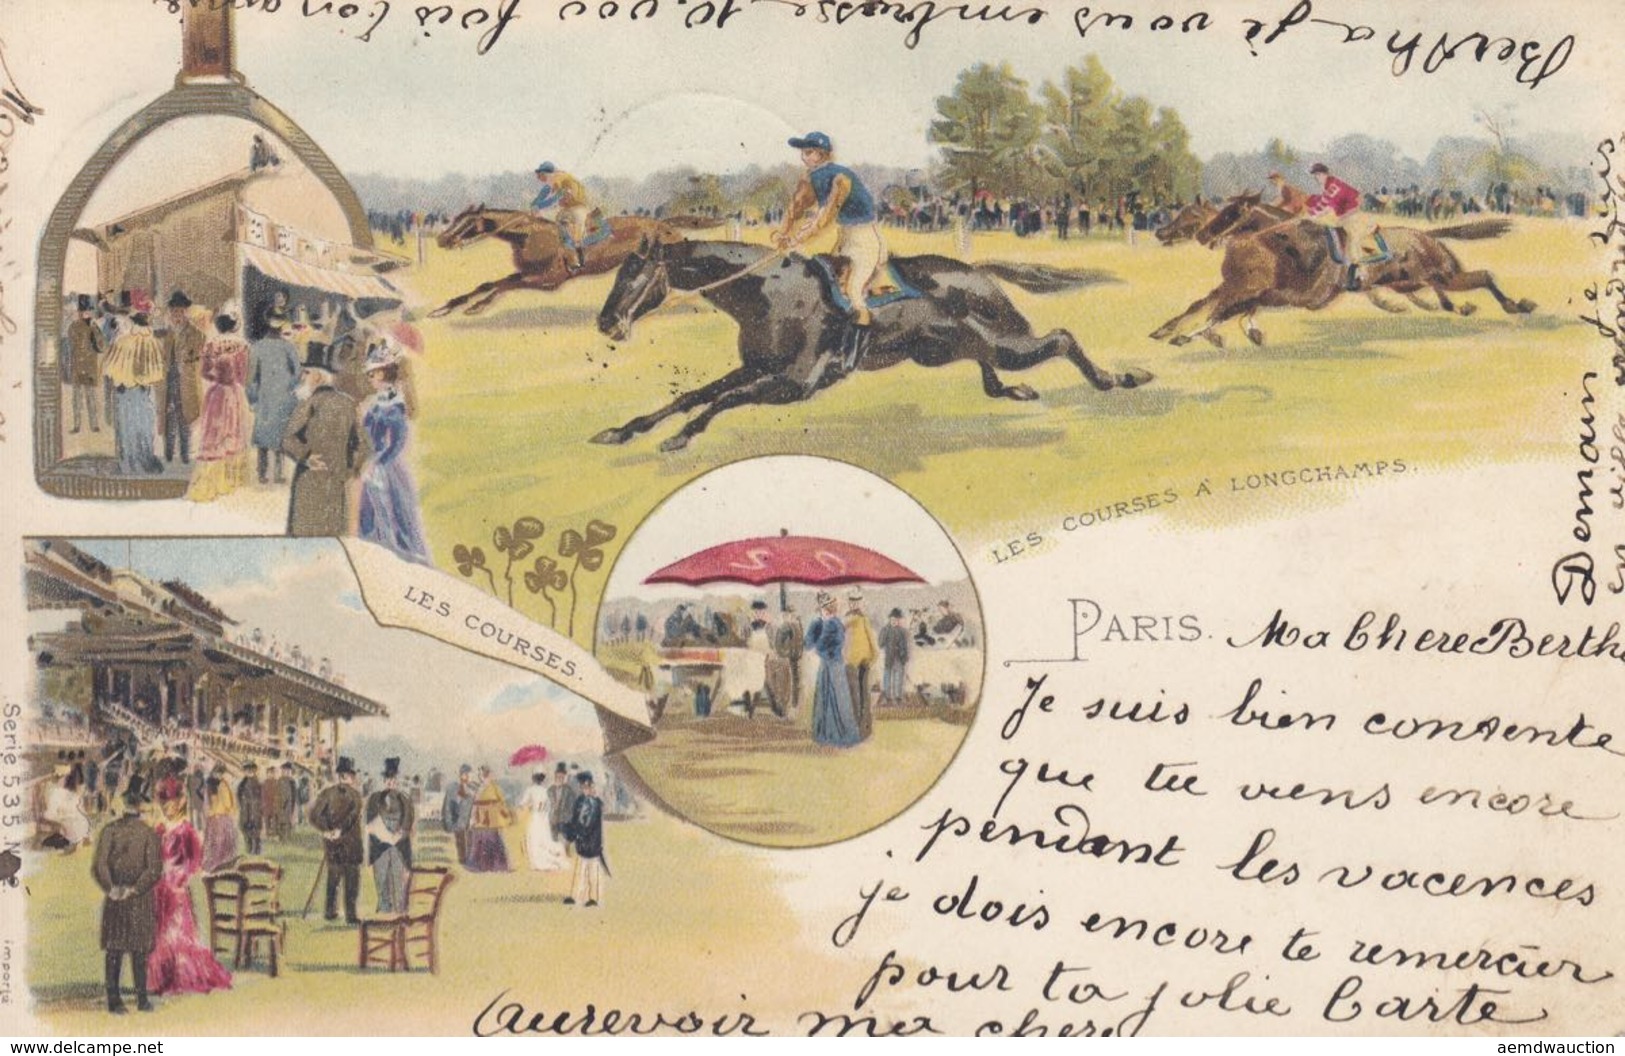 LES COURSES À LONGCHAMPS.
LES COURSES.
PARIS. Ma Chere Berthe
Je suis bien contente
que tu viens encore
pendant les vacences
je dois encore te remercier
pour ta jolie Carte
Aurevoir ma chere
Bertha je vous embrasse 10.000 fois
Demain je
Serie 535 No
importé
www.delcampe.net
aemdwauction